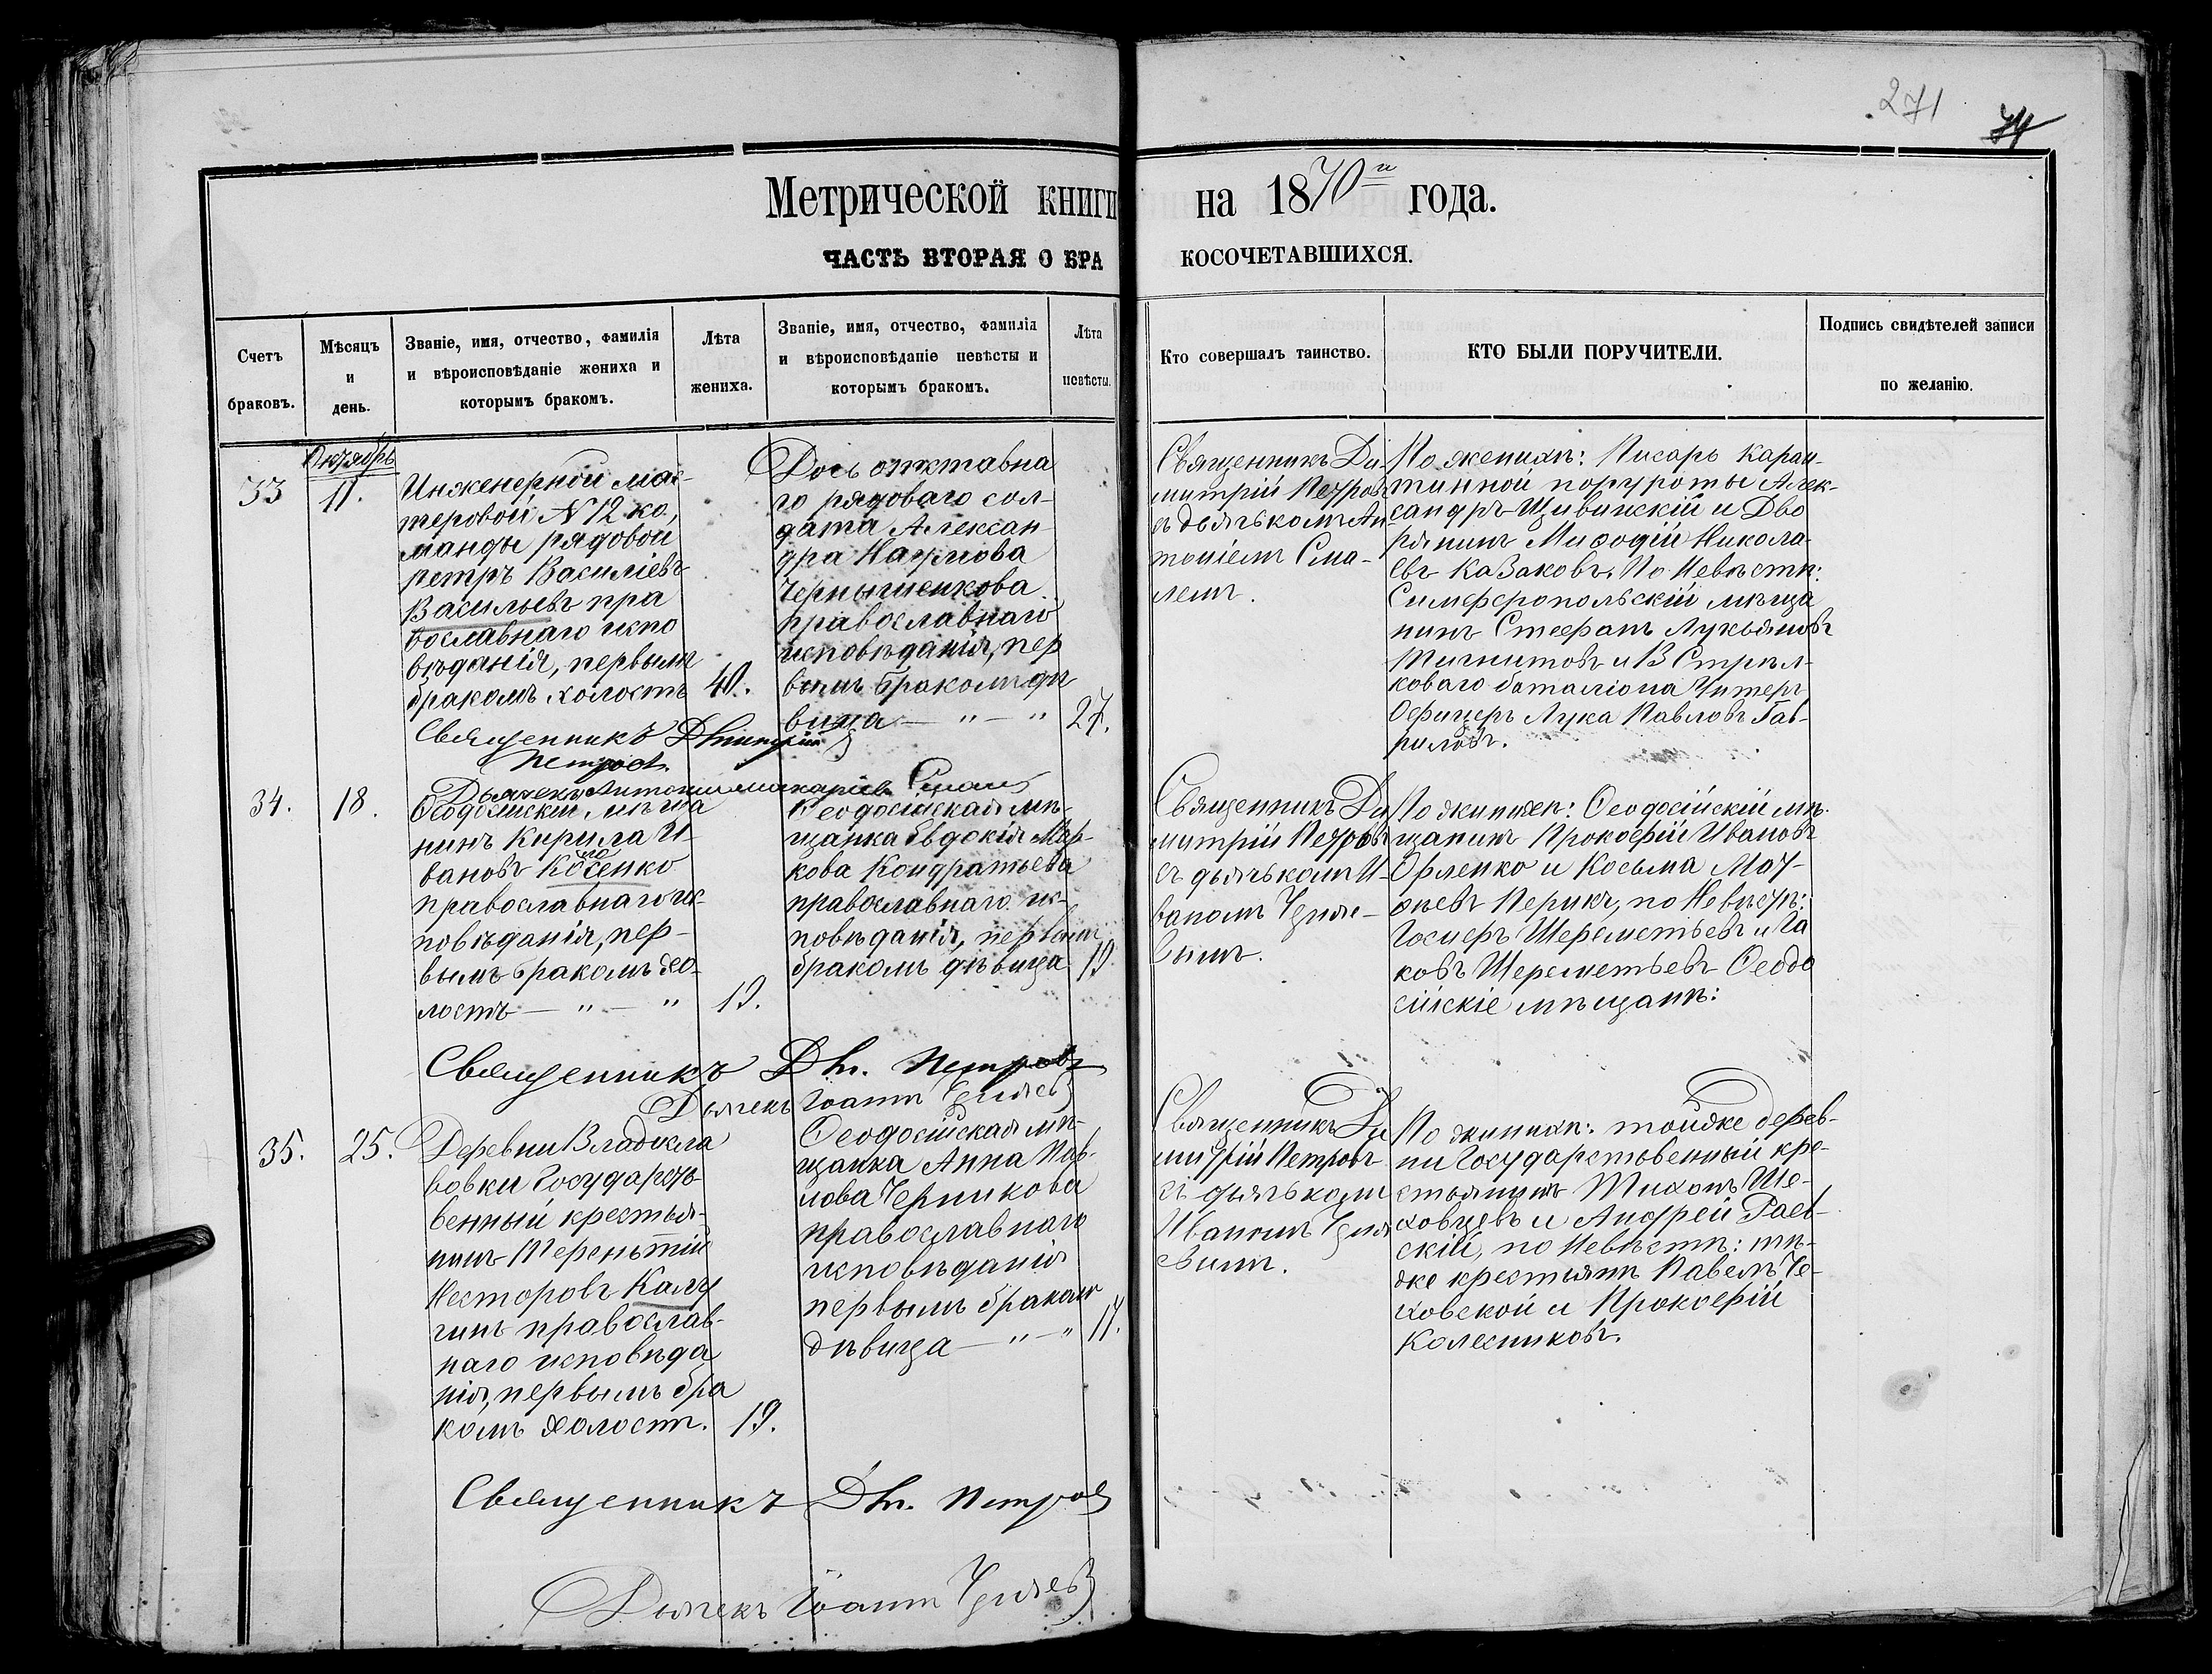 271
74
Метрической книги на 1870го года.
ЧАСТЬ ВТОРАЯ О БРАКОСОЧЕТАВШИХСЯ.
Счетъ браковъ.
Мѣсяцъ и день.
Званіе, имя, отчество, фамилія и вѣроисповѣданіе жениха и которымъ бракомъ.
Лѣта жениха.
Званіе, имя, отчество, фамилія и вѣроисповѣданіе невѣсты и которымъ бракомъ.
Лѣта невѣсты.
Кто совершалъ таинство.
КТО БЫЛИ ПОРУЧИТЕЛИ.
Подпись свидѣтелей записи по желанію.
33
Октябрь
11.
Инженерной мас-
теровой N 12 ко,
манды рядовой
петръ Василіевъ
Васильевъ пра
вославнаго испо
вѣданія, первымъ
бракомъ холостъ
40.
Дочь отставна
го рядоваго сол-
дата Алексан
дра Наумова
Чернышенкова
православнаго
исповѣданія, пер
вымъ бракомъ дѣ
вица — " — "
27.
Священникъ Ди-
митрій Петровъ
съ дьячькомъ Ан
тоніемъ Сма-
лемъ.
По женихѣ: Писарь каран-
тинной полуроты Алек-
сандръ Щивинскій и Дво
рянинъ Мифодій Никола-
евъ Казаковъ. По Невѣстѣ:
Симферопольскій мѣща
нинъ Стефанъ Лукьяновъ
и В Стрѣл-
коваго баталіона Унтеръ
Офицеръ Лука Павловъ Гав-
риловъ.
Священникъ Дмитрій
Петровъ.
Дьячекъ Антоній
34.
18.
Феодосійскій мѣща
нинъ Кирила И-
вановъ Косенко
православнаго ис-
повѣданія, пер-
вымъ бракомъ хо-
лостъ — " — "
19.
Феодосійская мѣ-
щанка Евдокія Мар-
кова Кондратьева
православнаго ис-
повѣданія, первымъ
бракомъ дѣвица
19
Священникъ Ди
митрій Петровъ
съ дьячькомъ И-
ваномъ
По жинихѣ: Феодосійскій мѣ-
щанинъ Прокофій Ивановъ
Орленко и Косьма Мат-
фѣевъ Перикъ, по Невѣстѣ:
Шереметьевъ и Іа
ковъ Шереметьевъ Феодо
сійскіе мѣщанѣ:
Священникъ Дм. Петровъ
Дьячекъ Іоаннъ
35.
25.
Деревни Владисла
вовки Государст-
венный крестья-
нинъ Терентій
Несторовъ Калу
гинъ православ-
наго исповѣда
нія, первымъ бра
комъ холостъ.
19.
Феодосійская мѣ-
щанка Анна Пав-
лова Черникова
православнаго
исповѣданія
первымъ бракомъ
дѣвица — " — "
17.
Священникъ Ди
митрій Петровъ
съ дьячькомъ
Иваномъ
По жинихѣ: тойже дерев-
ни Государственный кре-
стьянинъ Тихонъ Ше-
ховцевъ и Андрей Раев-
скій, по Невѣстѣ: тѣ-
же крестьянѣ Павелъ Че-
ховской и Прокофій
Колесниковъ.
Священникъ Дм. Петровъ
Дьячекъ Іоаннъ